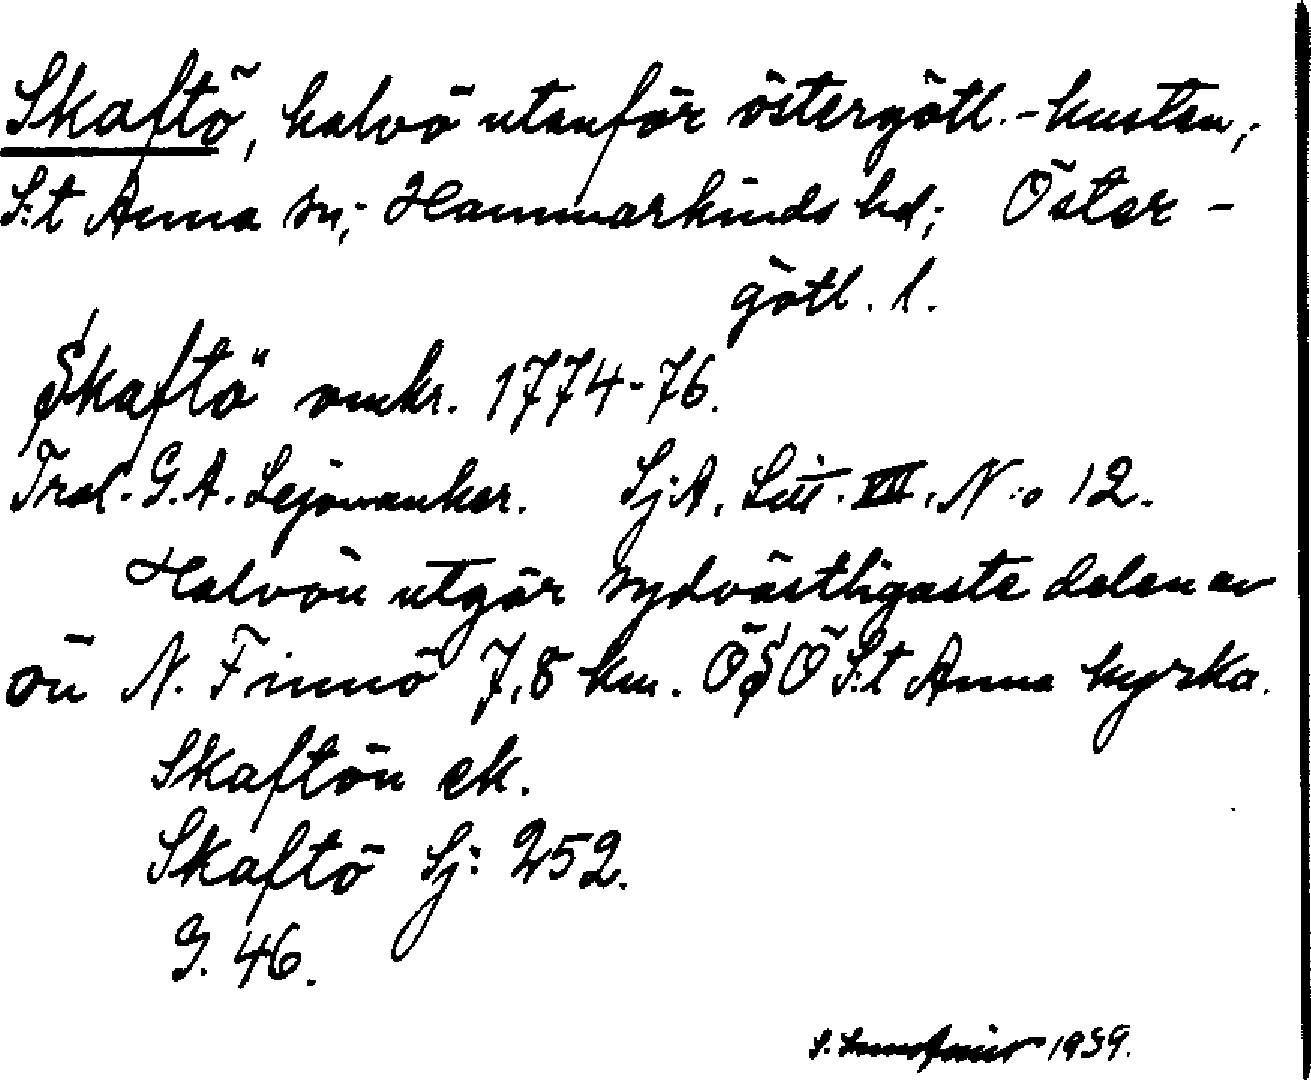 Skaftö, halvö utanför östergötl.-kusten;
S:t Anna sn; Hammarkinds hd; Öster-
götl. l.
Skaftö" omkr. 1774-76.
Trol. G.A. Lejonanker. Sj.A. Litt. VIII. N:o 12.
Halvön utgör sydvästligaste delen av
ön N. Finnö 7,8 km. ÖSÖ S:t Anna kyrka.
Skaftön ek.
Skaftö Sj: 252.
G. 46.
S. 1939.